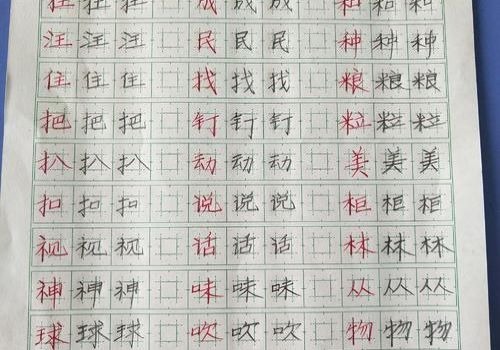 成 成 成
汪 汪 汪 民 民 民 种 种 种
住 住 住 找 找 找 粮 粮 粮
把 把 把 钉 钉 钉 粒 粒 粒
扒 扒 扒 动 动 动 美 美 美
扣 扣 扣 说 说 说 柜 柜 柜
视 视 视 话 话 话 林 林 林
神 神 神 味 味 味 从 从 从
球 球 球 吹 吹 吹 物 物 物